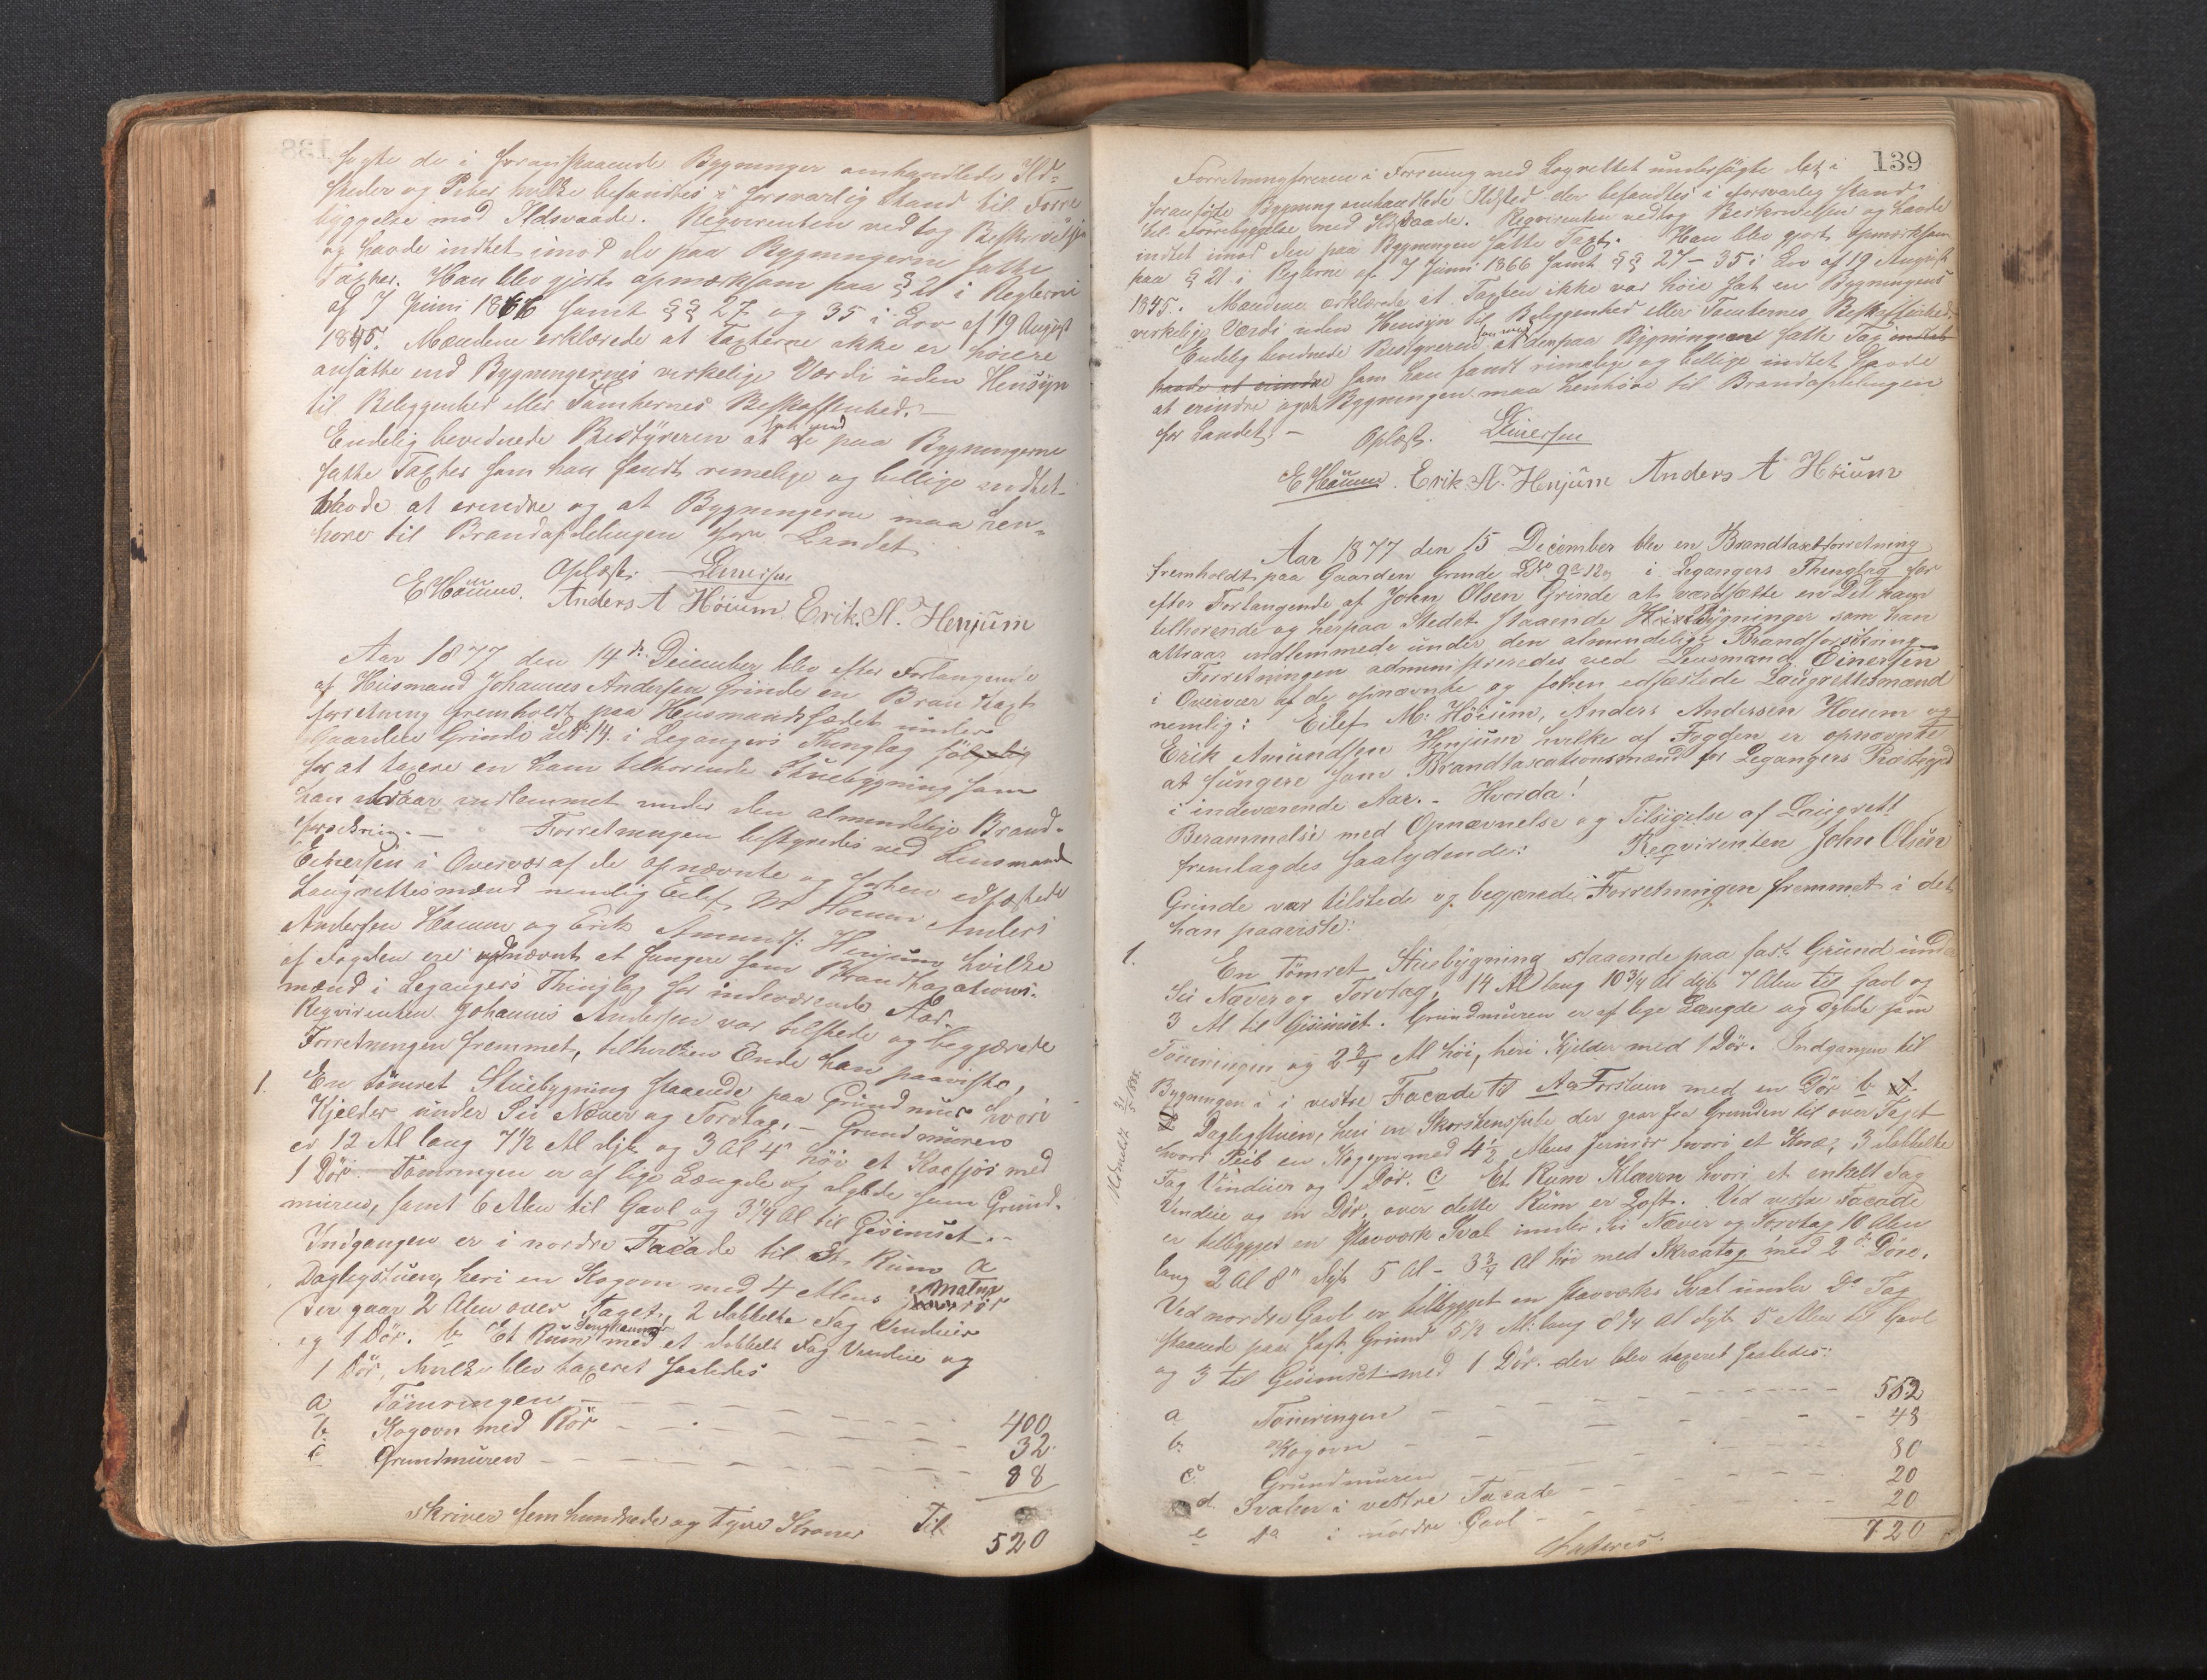 søgte de i foranstaaende Bygninger omhandlede Ild-
steder og Piber hvilke befandtes i forsvarlig Stand til Fore
byggelse mod Ildsvaade. Reqvirenten vedtog Beskrivelsen
og havde indtet imod de paa Bygningerne satte
Taxter. Han blev gjort opmærksom paa § 21 i Reglerne
af 7 Juni 1866 samt §§ 27 og 35 i Lov af 19 August
1845. Mændene erklærede at Taxterne ikke er høiere
ansatte end Bygningernes virkelige Værdi uden Hensyn
til Beliggenhed eller Tomternes Beskaffenhed.-
Endelig bevidnede Bestyreren at de paa Bygningerne
satte Taxter som han fandt rimelige og billige indtet
havde at erindre og at Bygningerne maa hen-
hører til Brandafdelingen for Landet
Oplæst. Einersen
EHøium. Anders A Høium Erik. A. Henjum
Aar 1877 den 14de December blev efter Forlangende
af Huusmand Johannes Andersen Grinde en Brandtaxt
forretning fremholdt paa Huusmandssædet under
Gaarden Grinde LNo 14. i Legangers Thinglag
for at taxere en ham tilhørende Stuebygning som
han attraar indlemmet under den almindelige Brand-
forsikring.- Forretningen bestyredes ved Lensmand
Einersen i Overvær af de opnævnte og forhen edfæstede
Laugrettesmænd nemlig Eilef M Høium Anders
Andersen Høium og Erik Amunds: Henjum hvilke
af Fogden ere opnævnt at fungere som Brandtaxations-
mænd i Legangers Thinglag for indeværende Aar.
Reqvirenten Johannes Andersen var tilstede og begjærede
Forretningen fremmet, til hvilken Ende han paaviste,
1. En tømret Stuebygning staaende paa Grundmur hvori
Kjelder under Sü Næver og Torvtag. - Grundmuren
er 12 Al lang 7 1/2 Al dyb og 3 Al 4" høi et med
1 Dør. Tømringen er af lige Længde og Dybde som Grund-
muren, samt 6 Alen til Gavl og 3 1/4 Al til Gesimset.-
Indgangen er i nordre Facade til Et Rum a
Dagligstuen, heri en Kogovn med 4 Alens rør
der gaar 2 Alen over Taget, 2 dobbelte Fag Vinduer
og 1 Dør. b Et Rum med et dobbelt Fag Vindue og
1 Dør, hvilke blev taxeret saaledes
a Tømringen - - - 400
b. Kogovn med Rør - - - 32.
c Grundmuren - - - 88
skriver fem hundrede og tyve Kroner Til 520
139
Forretningsføreren i Forening med Lagrettet undersøgte det i
foranførte Bygning omhandlede Ildsted der befandtes i forsvarlig Stand
til Forrebyggelse mod Ildsvaade. Reqvirenten vedtog Beskrivelsen og havde
indtet imod den paa Bygningen satte Taxt. Han blev gjort opmærksom
paa § 21 i Reglerne af 7 Juni 1866 samt §§ 27 - 35 i Lov af 19 August
1845. Mændene erklærede at Taxten ikke var høiere sat en Bygningens
virkelige Værdi uden Hensyn til Beliggenhed eller Tomternes Beskaffenhed.
Endelig bevidnede Bestyreren at den paa Bygningen satte Taxt indtet
havde at erindre som han fandt rimelige og billige indtet havde
at erindre og at Bygningen maa henhøre til Brandafdelingen
for Landet.- Oplæst. Einersen
EHøium. Erik A. Henjum Anders A Høium
Aar 1877 den 15 December blev en Brandtaxtforretning
fremholdt paa Gaarden Grinde LNo 9a 12 i Legangers Thinglag for
efter Forlangende af John Olsen Grinde at værdsætte en Del ham
tilhørende og herpaa Stedet staaende Huusbygninger som han
attraar indlemmede under den almindelige Brandforsikring
Forretningen administreredes ved Lensmand Einersen
i Overvær af de opnævnte og forhen edfæstede Laugrettesmænd
nemlig: Eilef M. Høium, Anders Andersen Høium og
Erik Amundsen Henjum hvilke af Fogden er opnævnte
at fungere som Brandtaxationsmænd for Legangers Præstegjeld
i indeværende Aar.- Hvorda!
Berammelse med Opnævnelse og Tilsigelse af Laugrett
fremlagdes saalydende: Reqvirenten John Olsen
Grinde var tilstede og begjærede Forretningen fremmet i det
han paaviste:
1. En tømret Stuebygning staaende paa fast Grund under
Sü Næver og Torvtag, 14 Al lang 10 3/4 Al dyb 7 Alen til Gavl og
3 Al til Gesimset. Grundmuren er af lige Længde og Dybde som
Tømringen og 2 3/4 Al høi, heri Kjelder med 1 Dør. Indgangen til
Bygningen i vestre Facade til A a Forstuen med en Dør b
Dagligstuen, heri en Skorstenspibe der gaar fra Grunden til over Taget
hvori Peis en Kogovn med 4 1/2 Alens Jernrør hvori et Knæ, 3 dobbelte
Fag Vinduer og 1 Dør. c Et Rum Kleven hvori et enkelt Fag
Vindue og en Dør, over dette Rum er Loft. Ved vestre Facade
er tilbygget en Stavværk Sval under Sü Næver og Torvtag 10 Alen
lang 2 Al 8" dyb 5 Al - 3 3/4 Al høi med Skraatag med 2de Døre.
Ved nordre Gavl er tilbygget en Stavværks Sval under Do Tag
staaende paa fast Grund 5 1/2 Al: lang 8 1/4 Al dyb 5 Alen til Gavl
og 3 til Gesimset med 1 Dør. der blev taxeret saaledes:
a Tømringen - - - 552
b. Kogovn - - - 48
c. Grundmuren - - - 80
d. Svalen i vestre Facade - - 20
e Do i nordre Gavl - - 20
Lateres. 720